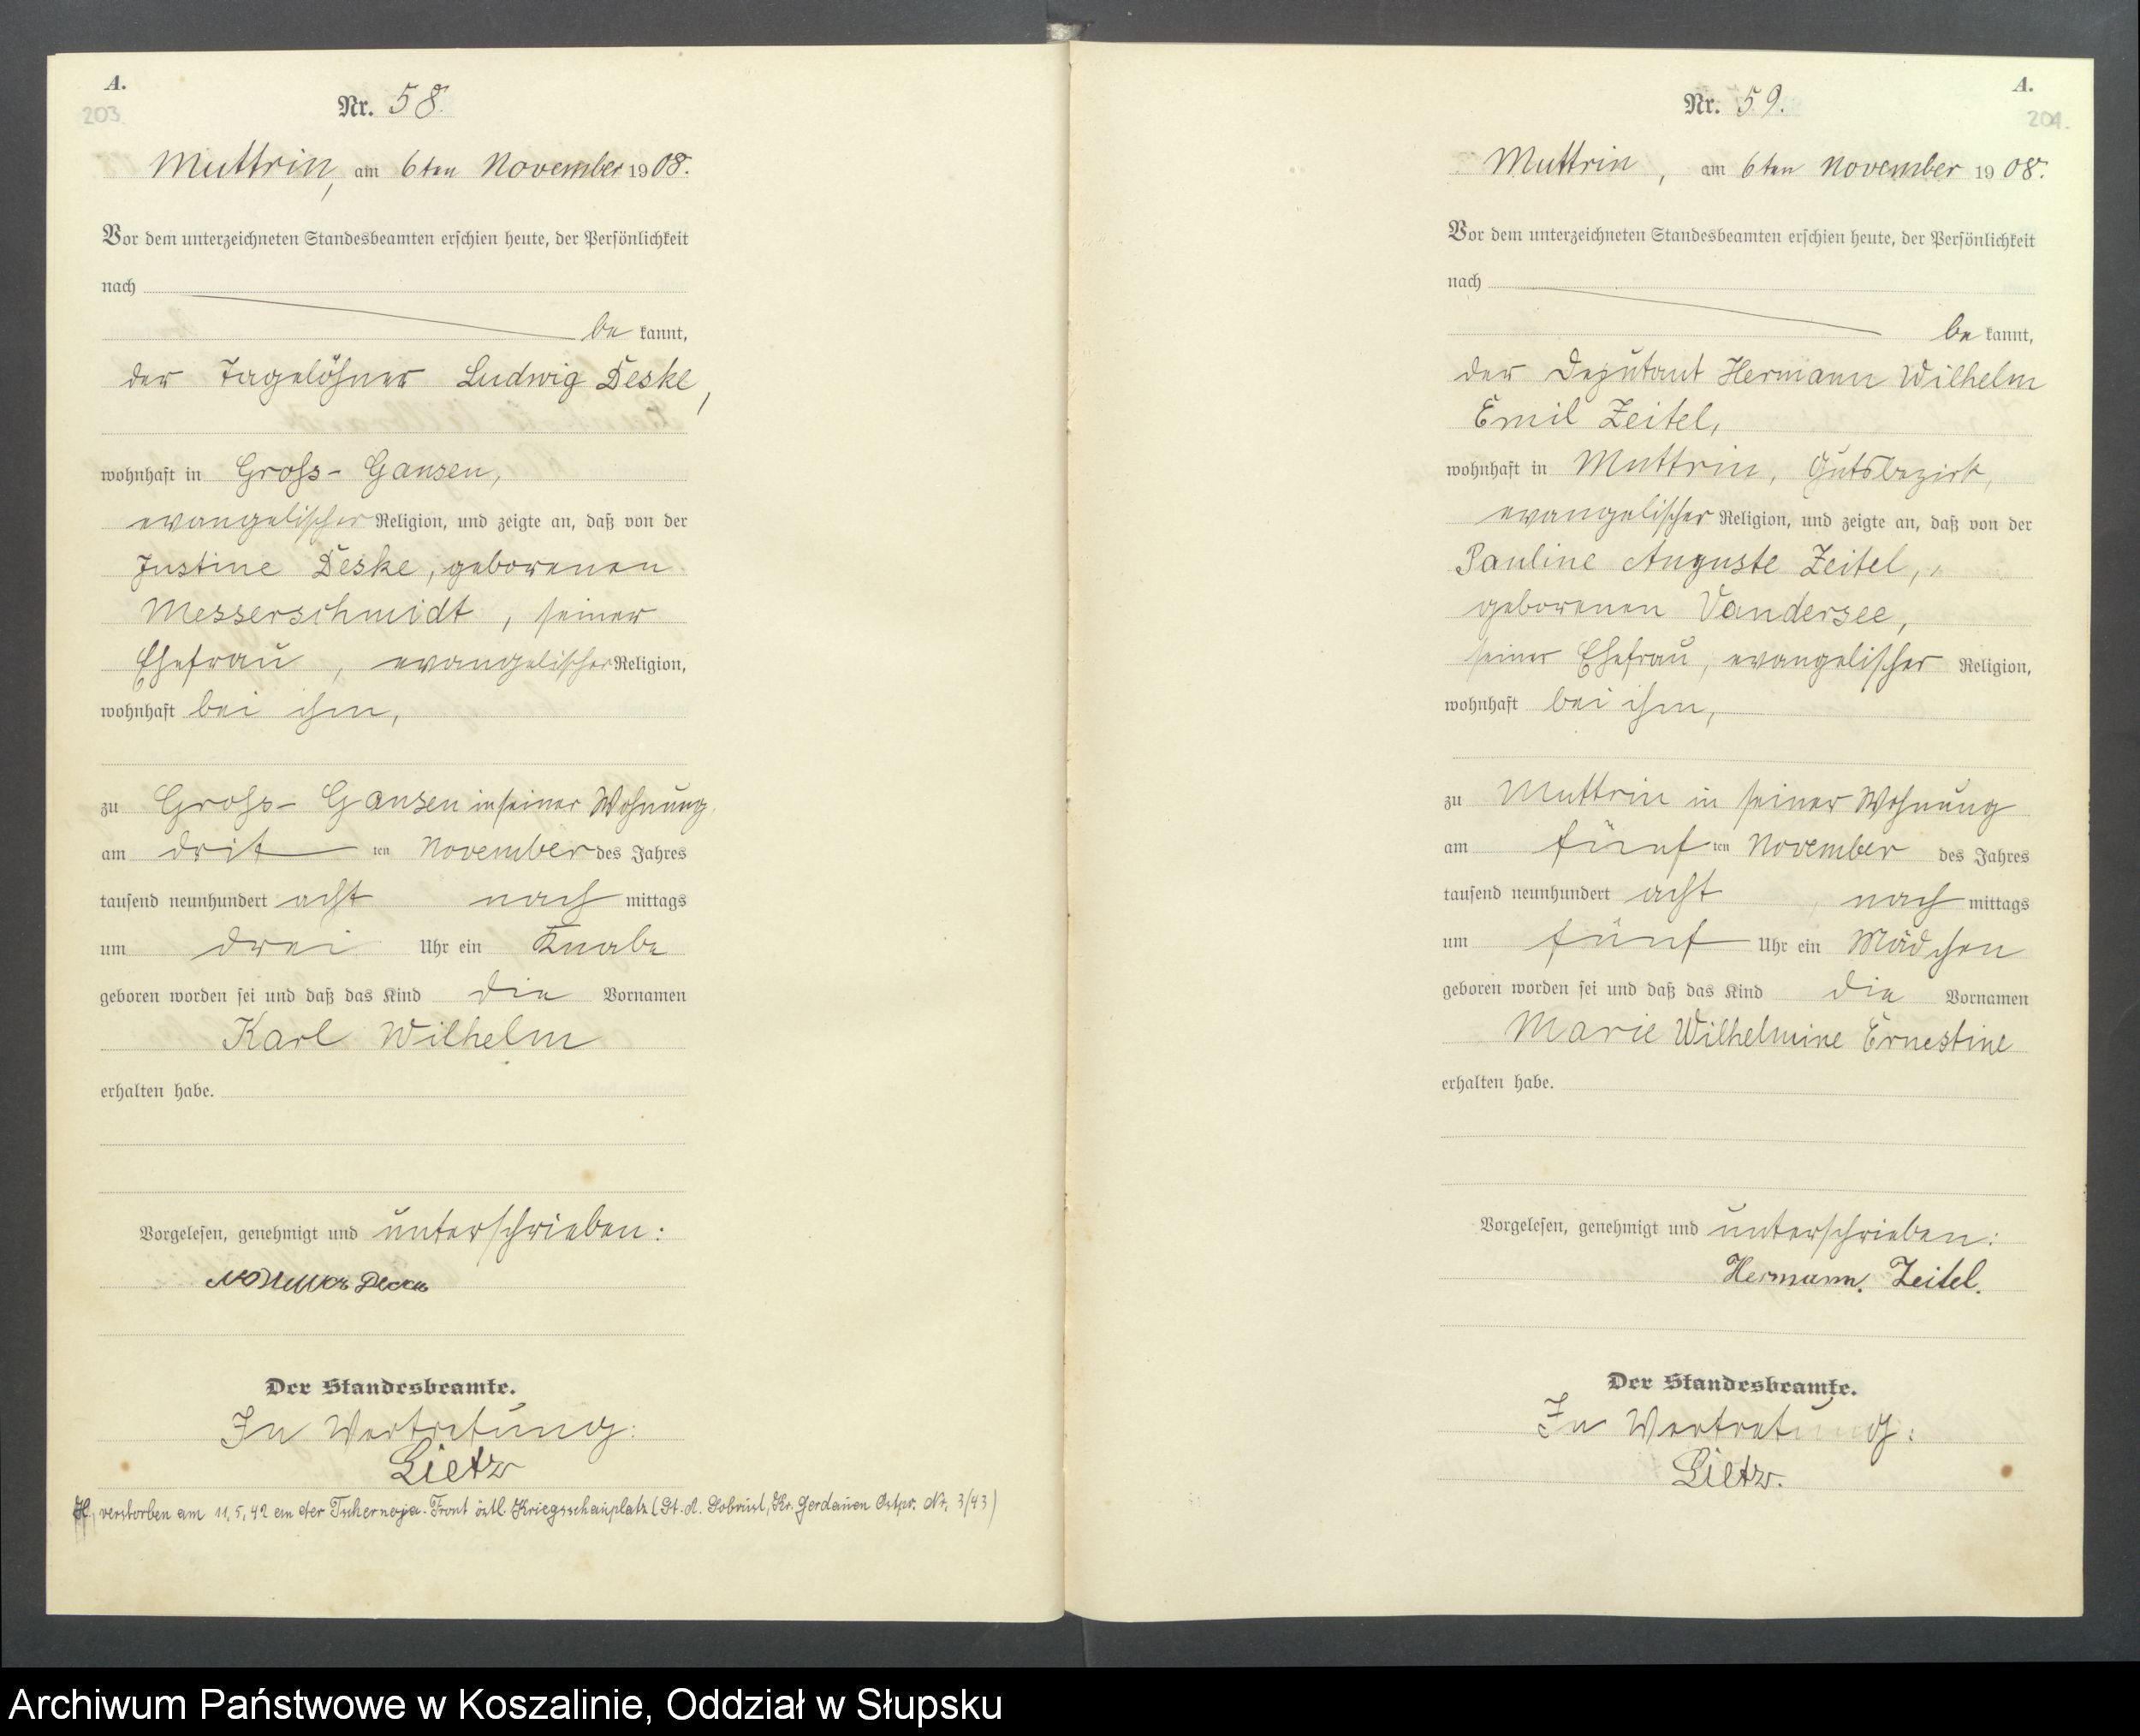 A.
203
Nr. 58.
Muttrin, am 6ten November 1908.
Vor dem unterzeichneten Standesbeamten erschien heute, der Persönlichkeit
nach
be kannt,
der Tagelöhner Ludwig Deske,
wohnhaft in Groß-Gansen,
evangelischer Religion, und zeigte an, daß von der
Justine Deske, geborenen
Messerschmidt, seiner
Ehefrau, evangelischer Religion,
wohnhaft bei ihm,
zu Groß-Gansen in seiner Wohnung
am dritten November des Jahres
tausend neunhundert acht nach mittags
um drei Uhr ein Knabe
geboren worden sei und daß das Kind die Vornamen
Karl Wilhelm
erhalten habe.
Vorgelesen, genehmigt und unterschrieben:
Der Standesbeamte.
In Vertretung:
Lietz
verstorben am 11.5.42 an der Front östl. Kriegsschauplatz (St. A. Kr. Gerdauen Ostpr. Nr. 3/43)
A.
204.
Nr. 59.
Muttrin, am 6ten November 1908.
Vor dem unterzeichneten Standesbeamten erschien heute, der Persönlichkeit
nach
be kannt,
der Deputant Hermann Wilhelm
Emil Zeitel,
wohnhaft in Muttrin, Gutsbezirk,
evangelischer Religion, und zeigte an, daß von der
Pauline Auguste Zeitel,
geborenen Vandersee,
seiner Ehefrau, evangelischer Religion,
wohnhaft bei ihm,
zu Muttrin in seiner Wohnung
am fünften November des Jahres
tausend neunhundert acht, nach mittags
um fünf Uhr ein Mädchen
geboren worden sei und daß das Kind die Vornamen
Marie Wilhelmine Ernestine
erhalten habe.
Vorgelesen, genehmigt und unterschrieben:
Hermann. Zeitel.
Der Standesbeamte.
In Vertretung:
Lietz.
Archiwum Państwowe w Koszalinie, Oddział w Słupsku